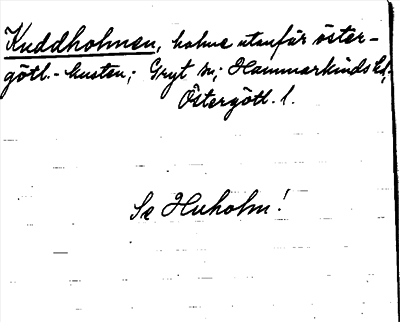 Kuddholmen, holme utanför öster-
götl.-kusten; Gryt sn; Hammarkinds hd,
Östergötl. l.
Se Huholm!